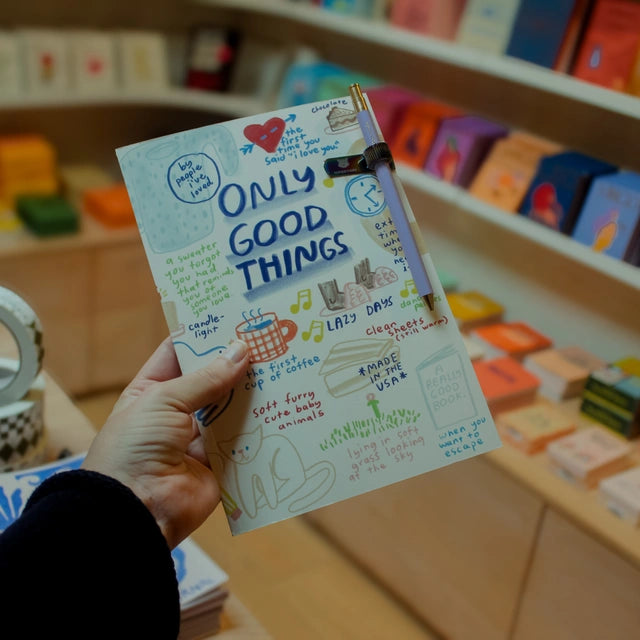 chocolate
the
first
time you
said "i love you"
by
people
i've
loved
ONLY
GOOD
THINGS
a sweater
you forgot
you had
that reminds
you of
someone
you love
candle-
light
LAZY DAYS
clean
sheets
(still warm)
the first
cup of coffee
*MADE
IN THE
USA*
A
REALLY
GOOD
BOOK.
soft furry
cute baby
animals
lying in soft
grass looking
at the sky
when you
want to
escape